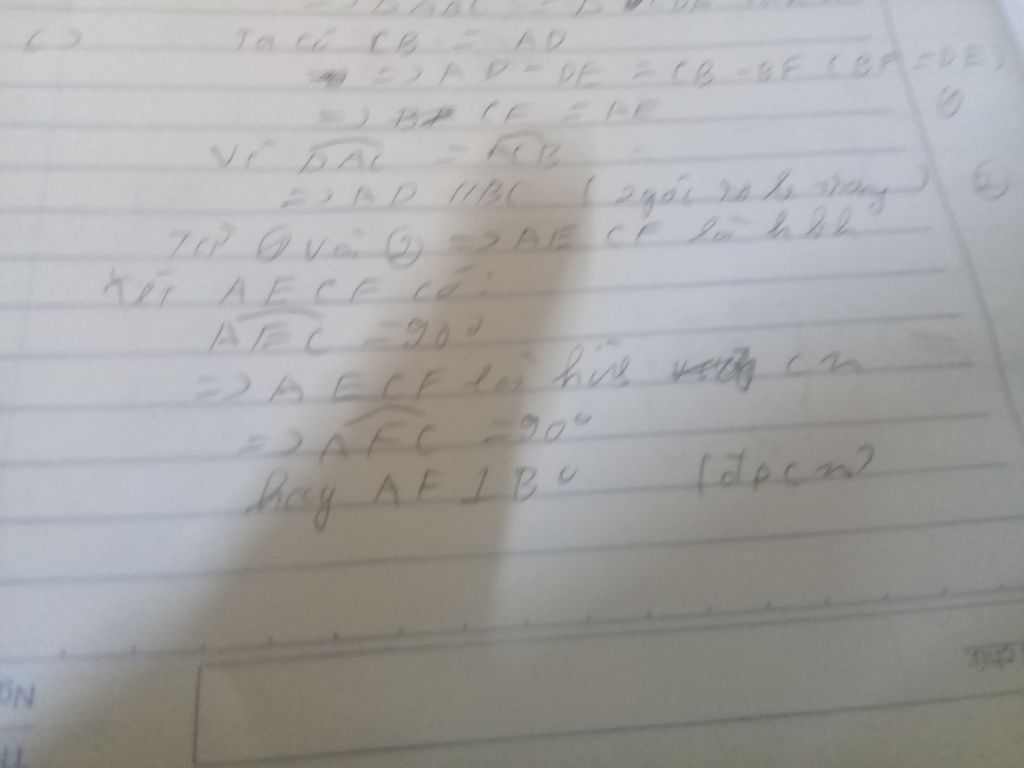 c) Ta có CB = AD
=> AD - DE = CB - BF (BF = DE)
=> CF = AE (1)
Vì DAC = FCB
=> AD // BC (2 góc so le trong) (2)
Từ (1) và (2) => AECF là hbh
Xét AECF có:
AEC = 90°
=> AECF là hình cn
=> AFC = 90°
hay AF ⊥ BC (đpcm)
ÔN